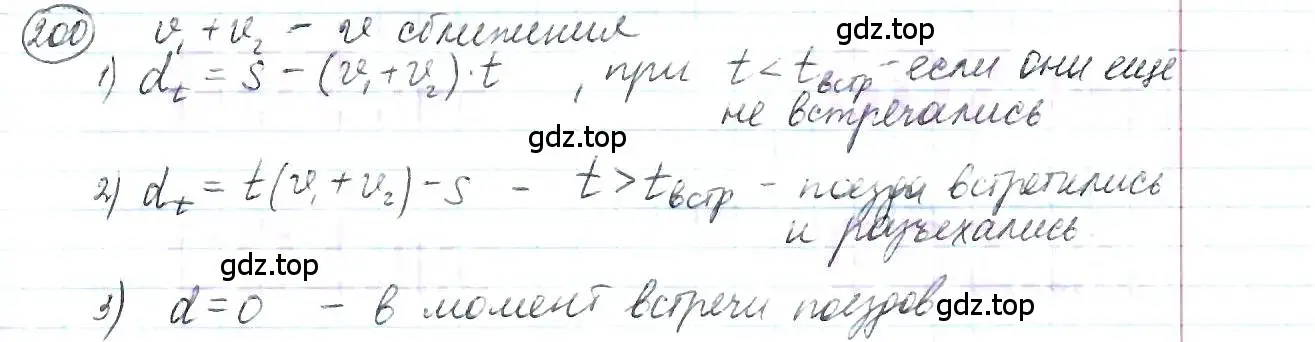 200 v₁ + v₂ - v сближения
1) dₜ = S - (v₁ + v₂) · t , при t < t встр - если они ещё
не встречались
gdz.top
2) dₜ = t (v₁ + v₂) - S - t > t встр - поезда встретились
и разъехались
gdz.top
3) d = 0 - в момент встречи поездов
gdz.top